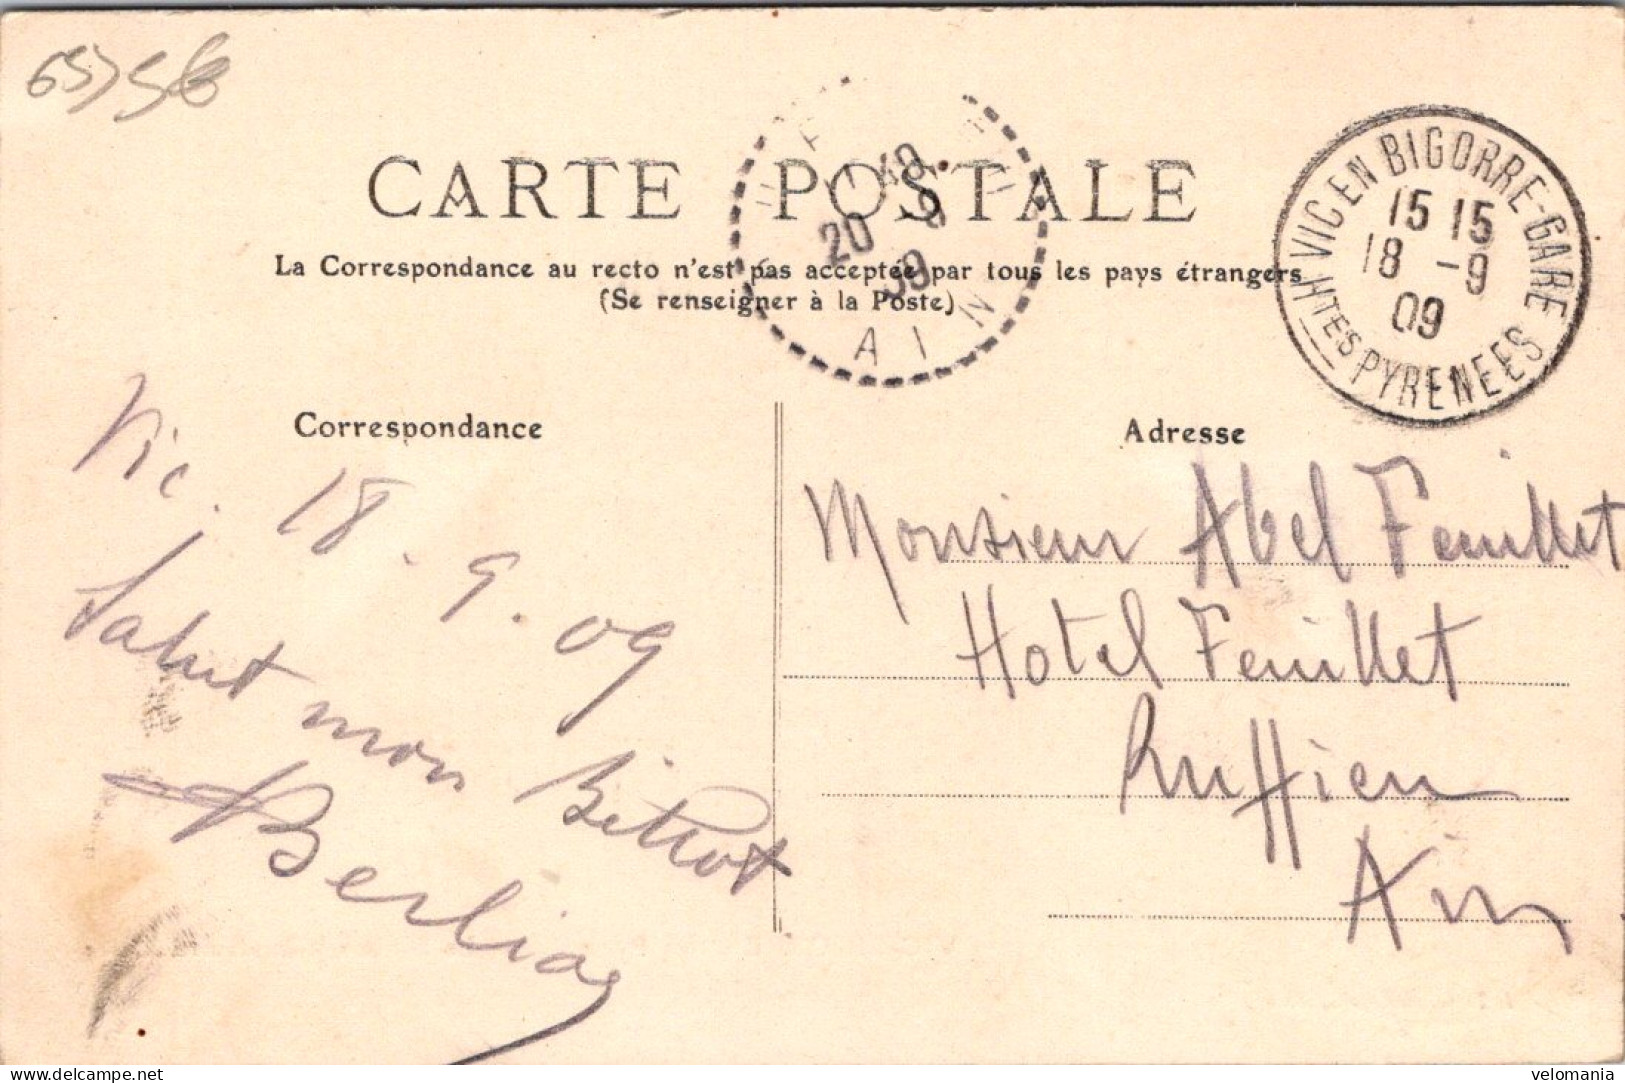 65756
CARTE POSTALE
La Correspondance au recto n'est pas acceptée par tous les pays étrangers
(Se renseigner à la Poste)
20 -9
09
AIN
VIC EN BIGORRE-GARE
15 15
18 -9
09
HTES PYRENEES
Correspondance
Vic. 18.9.09
Salut mon Bitrot
Berlioz
Adresse
Monsieur Abel Feuillet
Hotel Feuillet
Ruffieu
Ain
www.delcampe.net
velomania